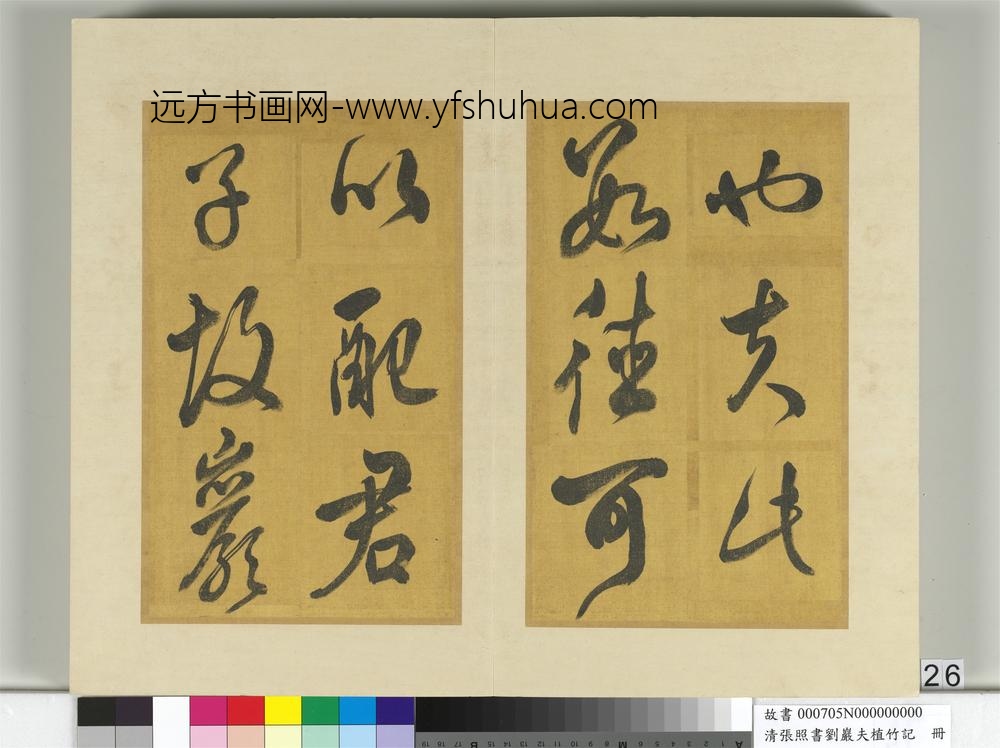 远方书画网-www.yfshuhua.com
也夫此
數德可
以配君
子故巖
26
故書 000705N000000000
清張照書劉巖夫植竹記 冊